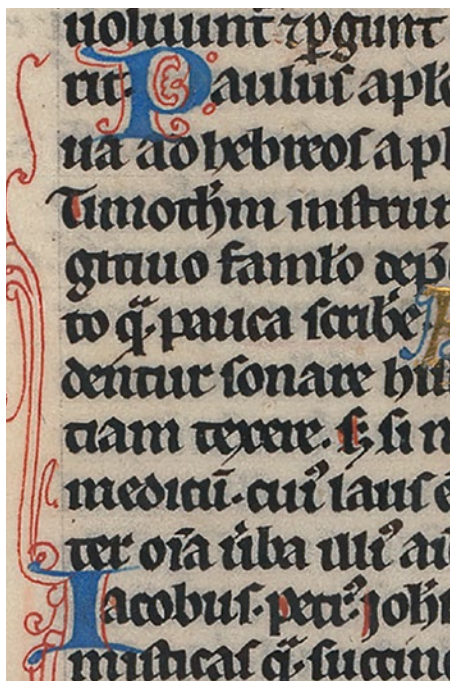 uoluunt ⁊ pgunt
rit. Paulus apłs
ua ad hebreos apł
Timothm instru
gitiuo famlo dep̄
to q̃ pauca scribe.
dentur sonare his
tiam texere. s; si n
medicū. cui᾽ laus ē
ter oīa ūba illi᾽ ai
Iacobus. petr᾽. joh
misticas q̃ succin